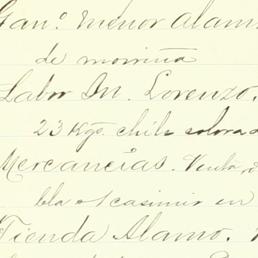 Gan.º menor Alam
de morriña
Labor Sn. Lorenzo.
23 Kgs. chile colorad
Mercancias. Venta, d
bla o/ casimir en
Tienda Alamo.